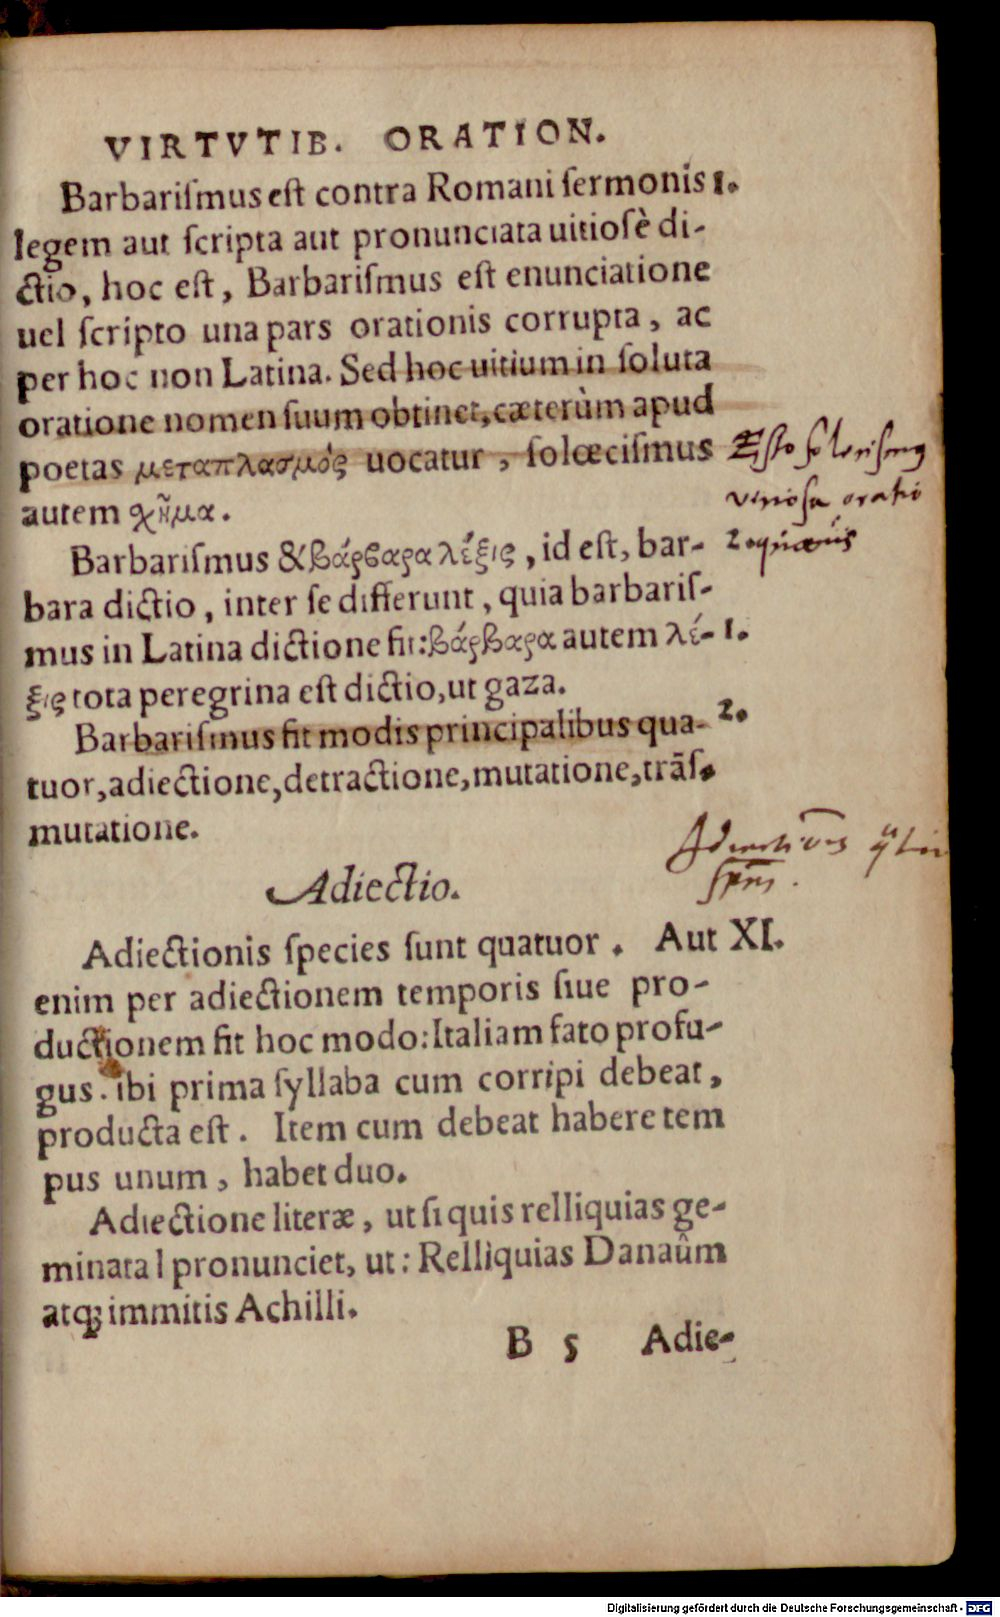 VIRTVTIB. ORATION.
Barbariſmus eſt contra Romani ſermonis 1.
legem aut ſcripta aut pronunciata uitioſè di-
ctio, hoc eſt, Barbariſmus eſt enunciatione
uel ſcripto una pars orationis corrupta, ac
per hoc non Latina. Sed hoc uitium in ſoluta
oratione nomen ſuum obtinet, cæterùm apud
poetas μεταπλασμός uocatur, ſolœciſmus
autem χῆμα.
Barbariſmus & βάρβαρα λέξις, id eſt, bar- 2.
bara dictio, inter ſe differunt, quia barbariſ-
mus in Latina dictione fit: βάρβαρα autem λέ- 1.
ξις tota peregrina eſt dictio, ut gaza.
Barbariſmus fit modis principalibus qua- 2.
tuor, adiectione, detractione, mutatione, trāſ-
mutatione.
Adiectio.
Adiectionis ſpecies ſunt quatuor. Aut XI.
enim per adiectionem temporis ſiue pro-
ductionem fit hoc modo: Italiam fato profu-
gus. ibi prima ſyllaba cum corripi debeat,
producta eſt. Item cum debeat habere tem
pus unum, habet duo.
Adiectione literæ, ut ſi quis relliquias ge-
minata l pronunciet, ut: Relliquias Danaûm
atq; immitis Achilli.
B 5 Adie-
oratio
Digitalisierung gefördert durch die Deutsche Forschungsgemeinschaft - DFG